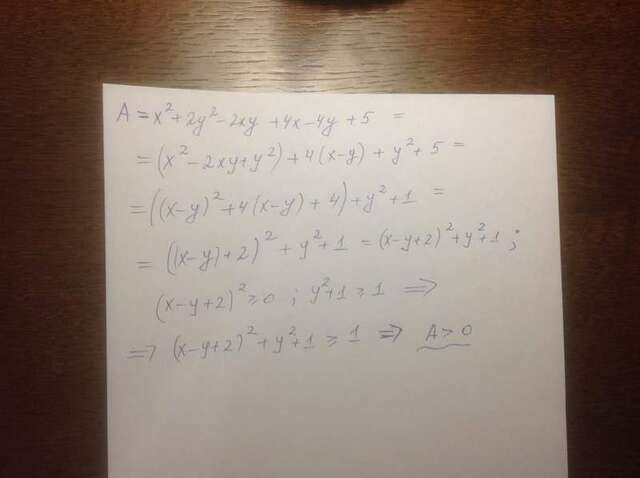 A = x² + 2y² - 2xy + 4x - 4y + 5 =
= (x² - 2xy + y²) + 4(x-y) + y² + 5 =
= ((x-y)² + 4(x-y) + 4) + y² + 1 =
= ((x-y)+2)² + y² + 1 = (x-y+2)² + y² + 1 ;
(x-y+2)² ≥ 0 ; y²+1 ≥ 1 ⟹
⟹ (x-y+2)² + y² + 1 ≥ 1 ⟹ A > 0